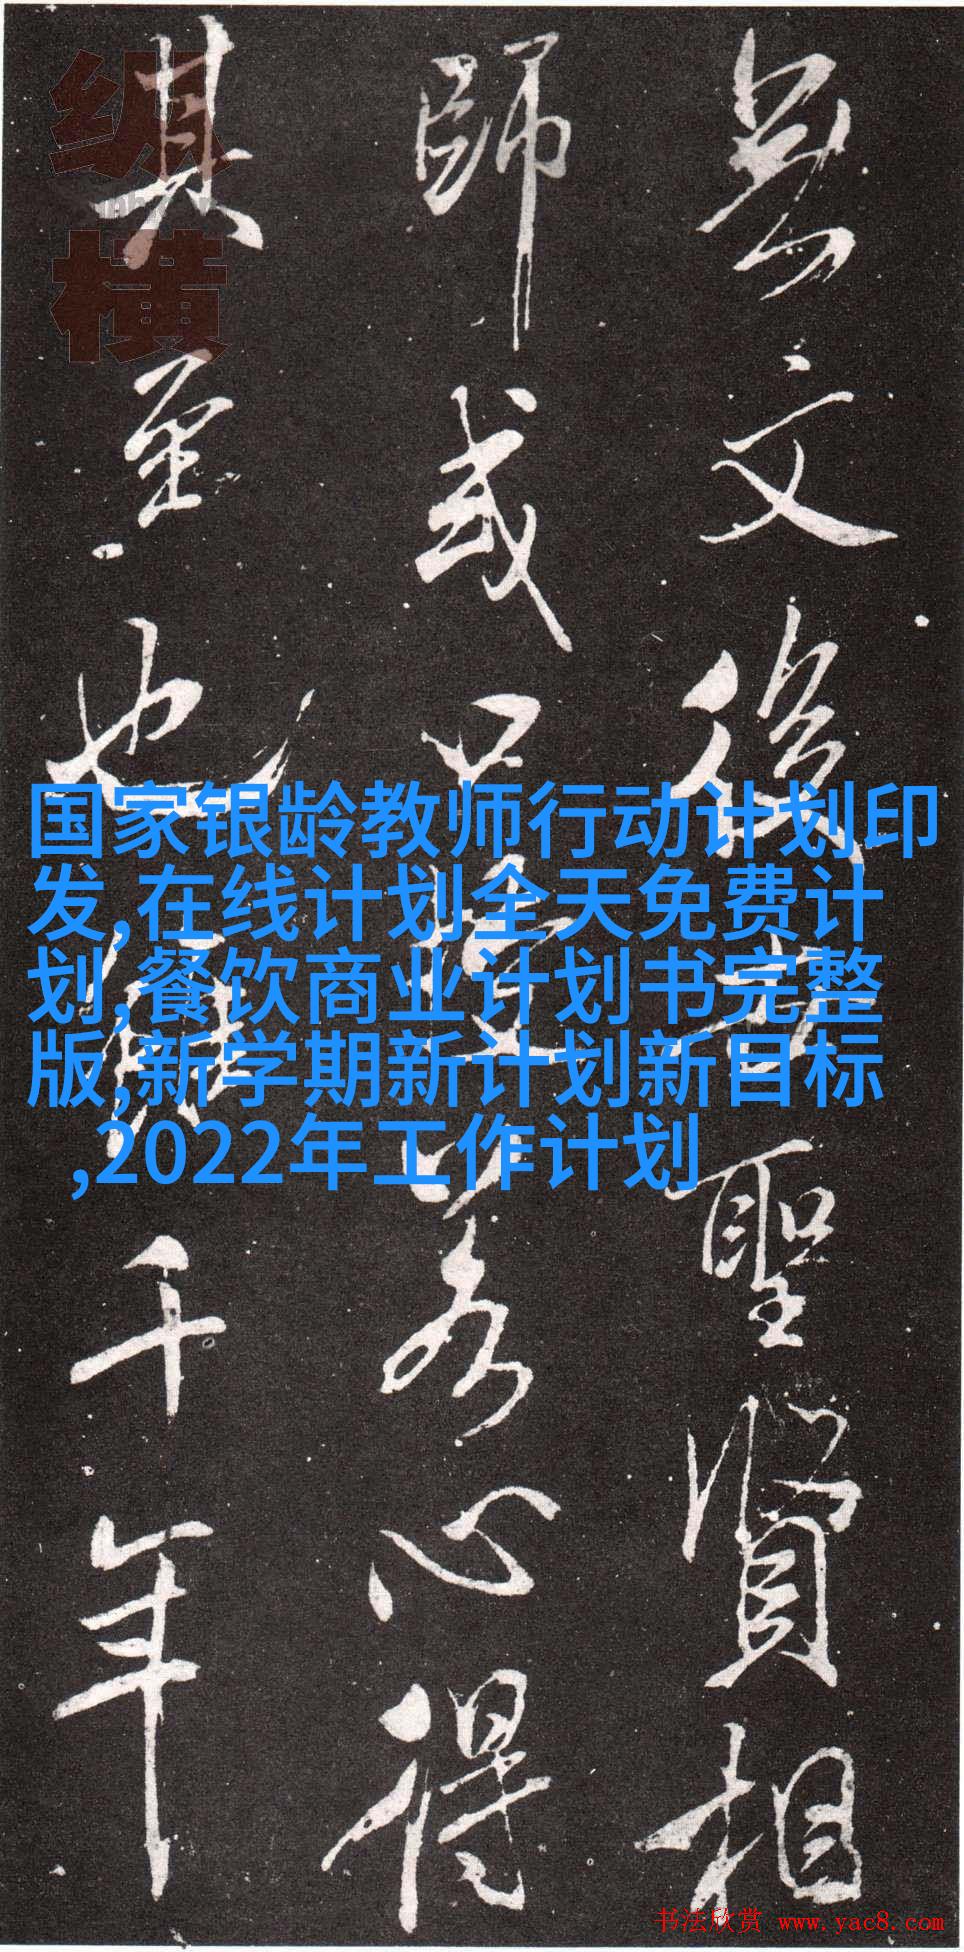 文後聖賢相
師或口心得
其至也千年
横
国家银龄教师行动计划印
发,在线计划全天免费计
划,餐饮商业计划书完整
版,新学期新计划新目标
,2022年工作计划
书法欣赏 www.yac8.com